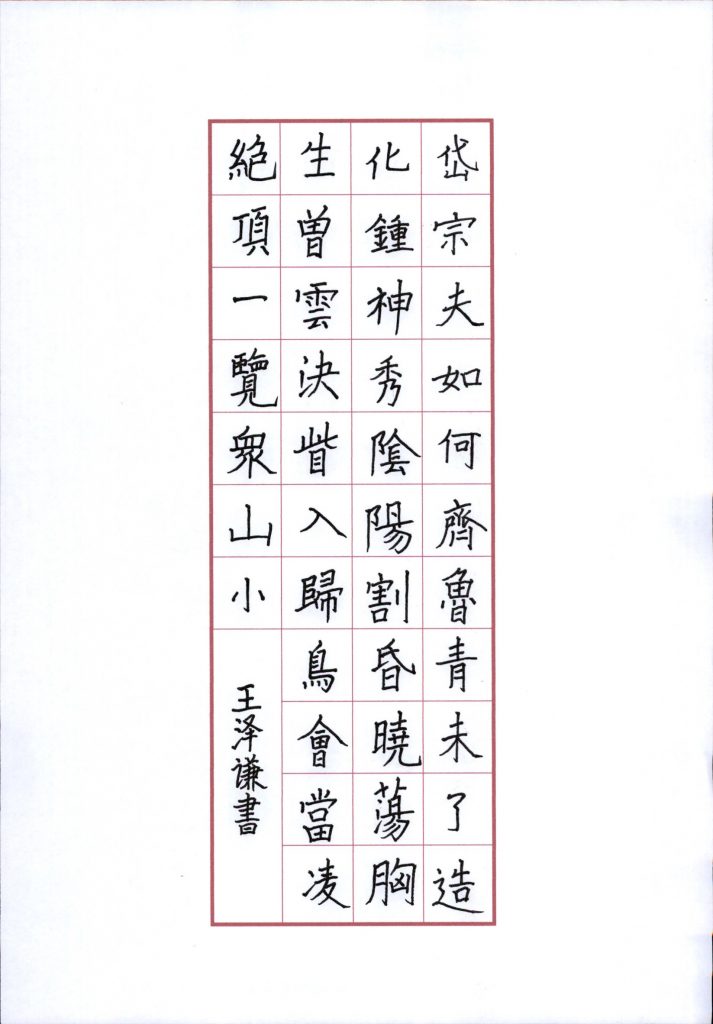 岱宗夫如何齊魯青未了造
化鍾神秀陰陽割昏曉蕩胸
生曽雲決眥入歸鳥會當凌
絶頂一覽衆山小
王泽谦書